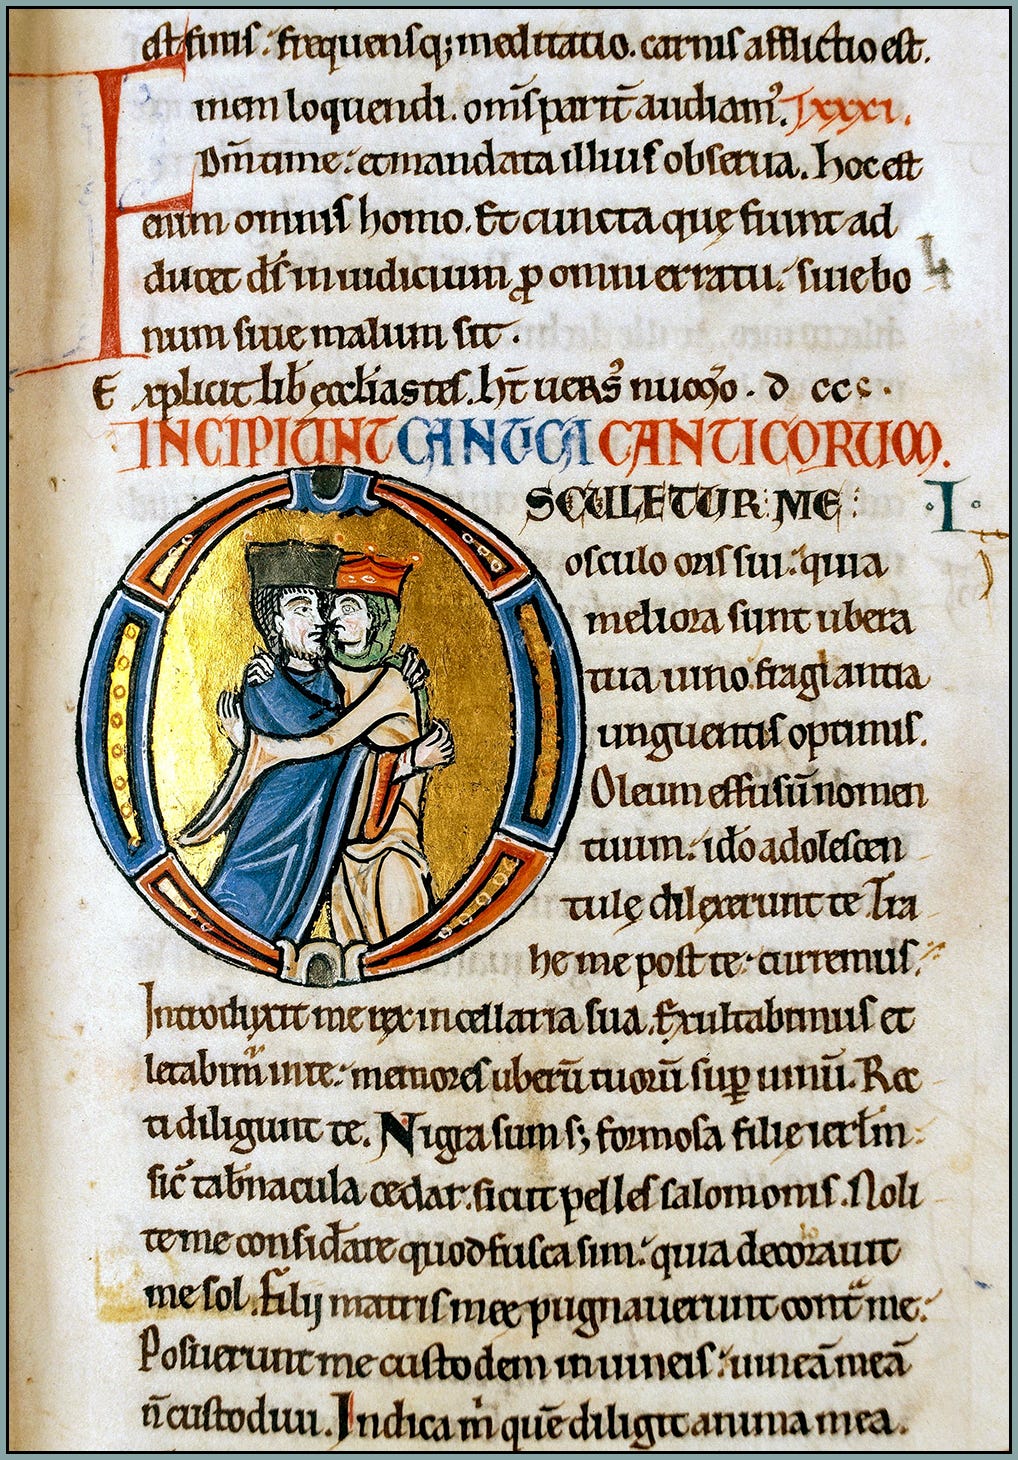 est finis. frequensq; meditatio. carnis afflictio est.
Finem loquendi. om̄s parit̄ audiam᷒. Ixxxi.
Dm̄ time. et mandata illius observa. hoc est
enim omnis homo. Et cuncta quę fiunt ad
ducet ds̄ in iudicium ꝓ omni erratu. sive bo
num sive malum sit.
Explicit lib̄ eccl̄iastes. ht̄ vers᷒ num̄o. d ccc.
INCIPIUNT CANTICA CANTICORUM.
OSCULETUR ME I.
osculo oris sui. quia
meliora sunt ubera
tua vino fraglantia
unguentis optimis.
Oleum effusū nomen
tuum. ido̅ adolescen
tulę dilexerunt te Tra
he me post te. curremus.
Introduxit me rex in cellaria sua. Exultabimus et
letabim᷒ in te. memores uberū tuorū sup̄ vinū. Rec
ti diligunt te. Nigra sum s; formosa filie ierl̄m
sic̄ tab̄nacula cedar. sicut pelles salomonis. Noli
te me consid̄are quod fusca sim. quia decoravit
me sol. Filij matris mee pugnaverunt cont̄ me.
Posuerunt me custodem in vineis. vineā meā
n̄ custodivi. Indica m̄ quē diligit anima mea.